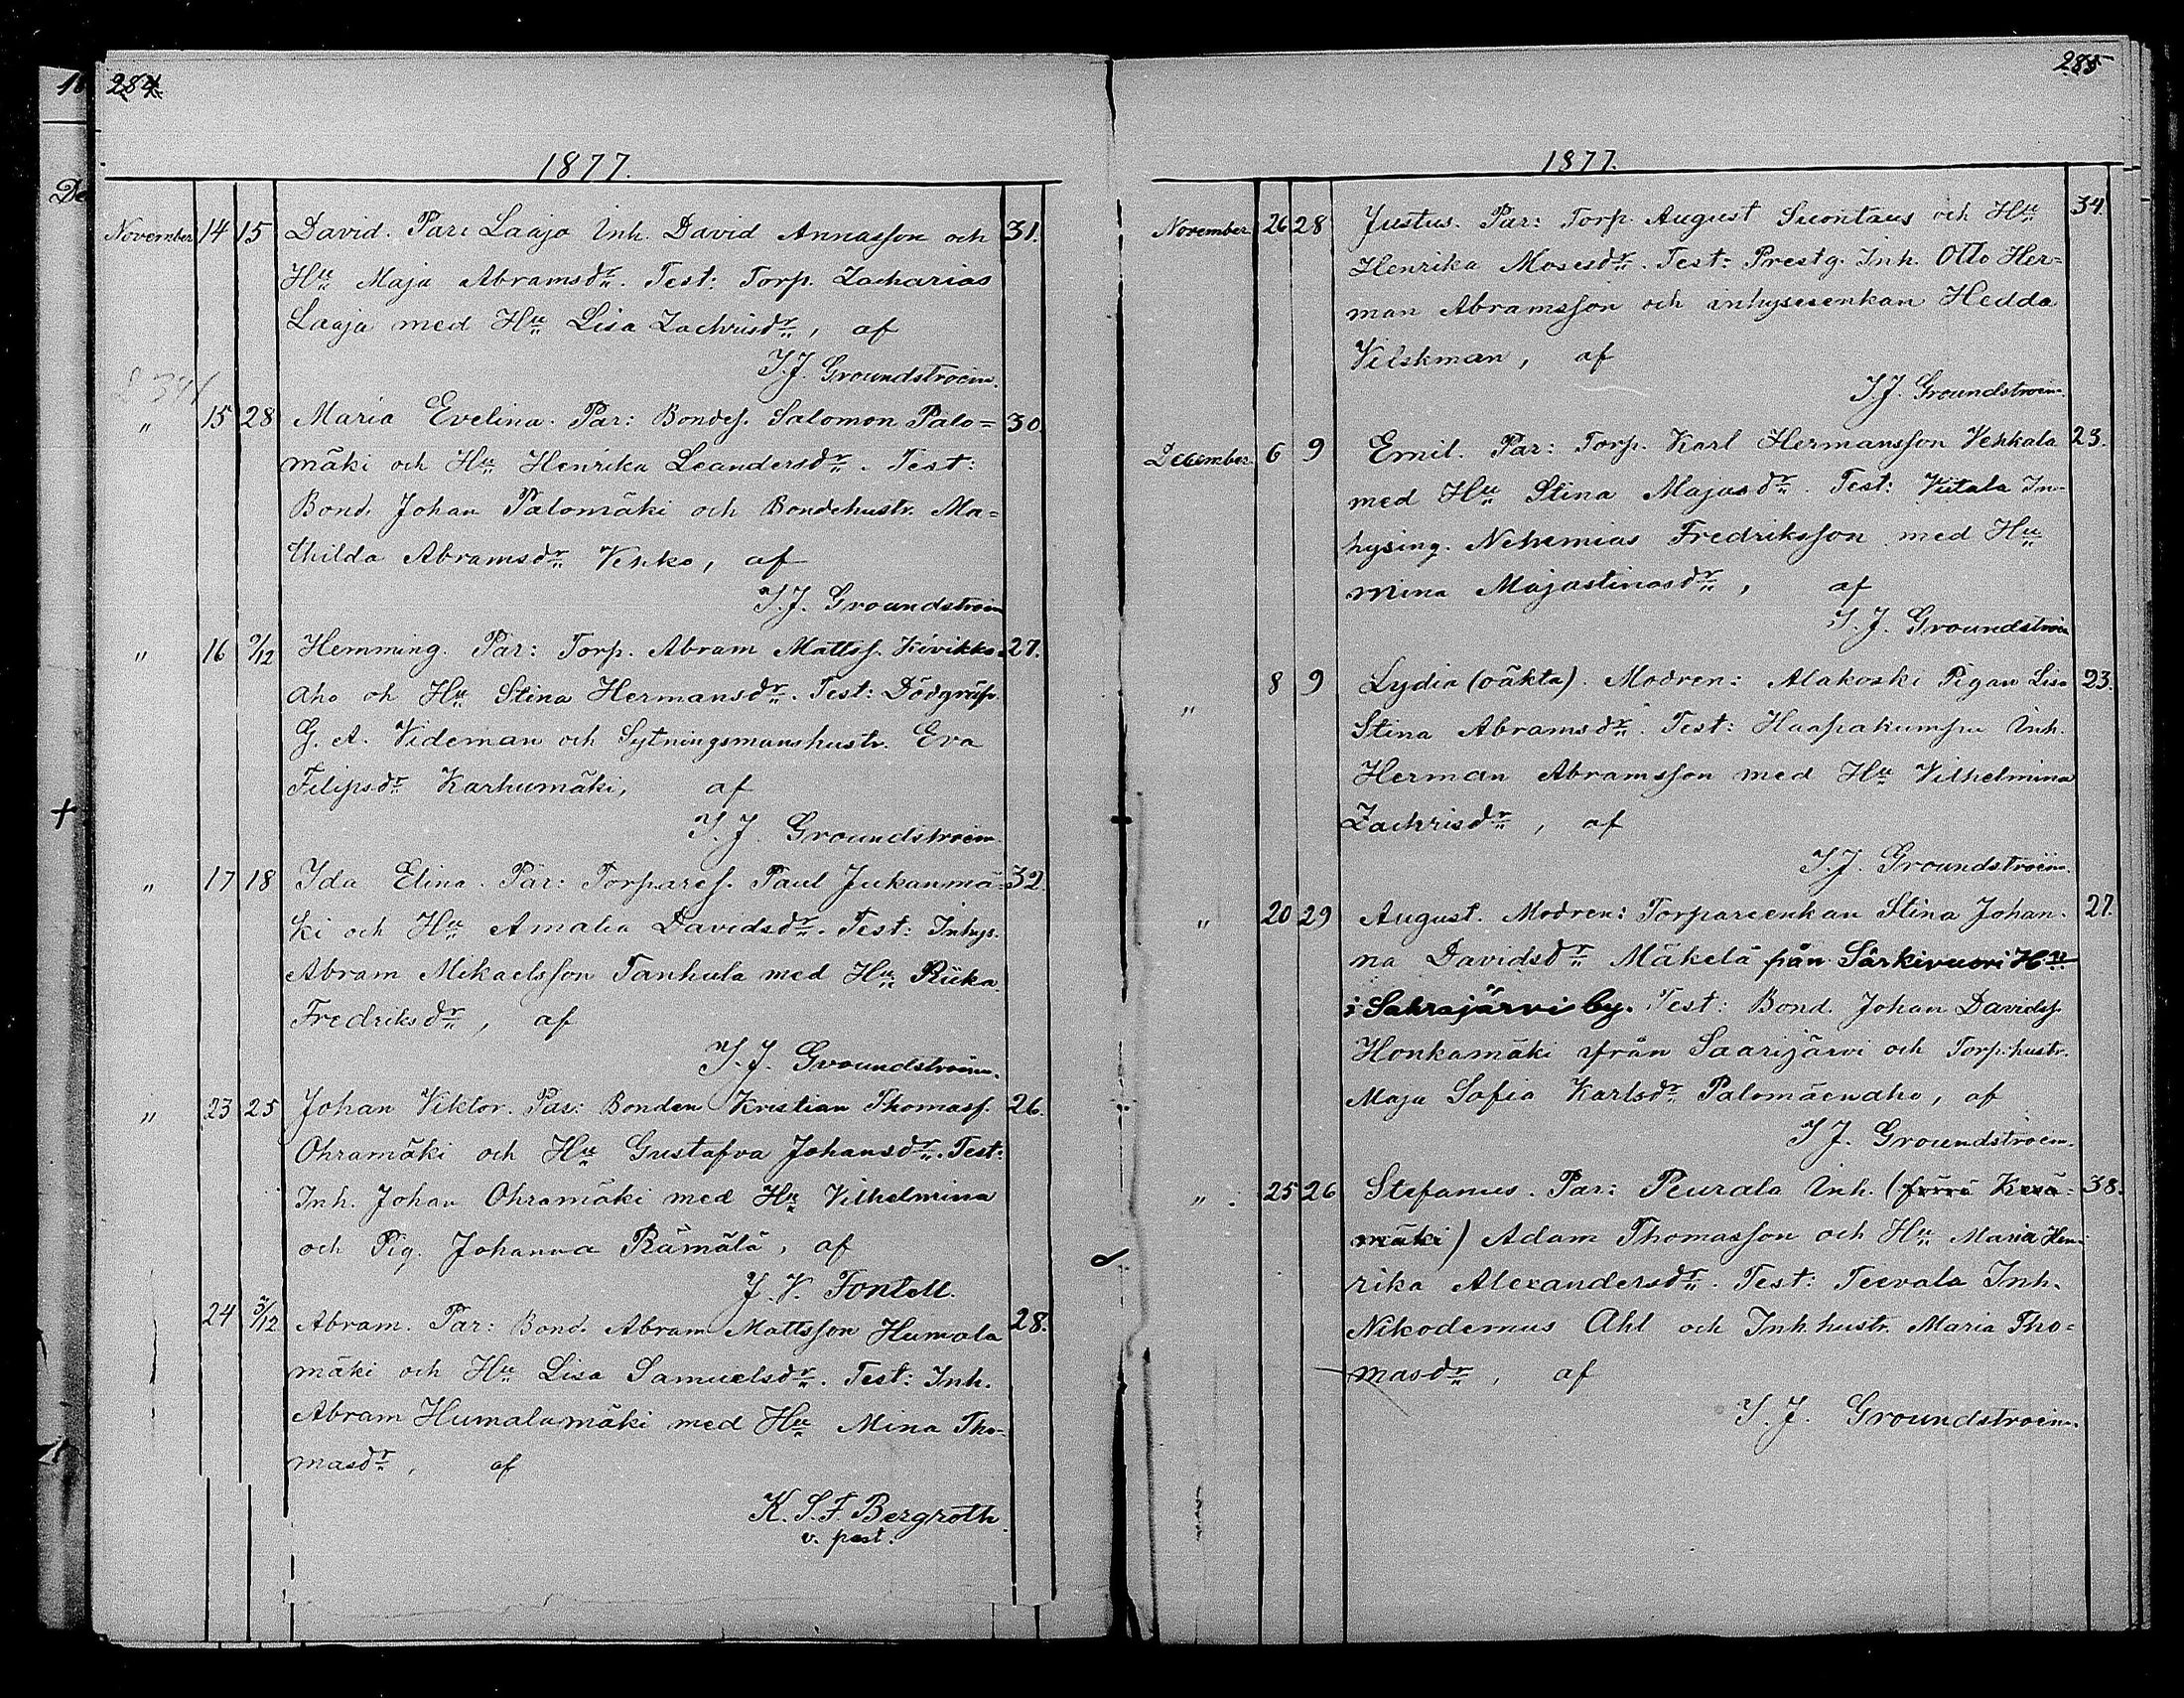 284
1877.
November 14 15 David. Par: Laaja Inh. David Annasson och 31.
Hu Maja Abramsdr. Test: Torp. Zacharias
Laaja med Hu Lisa Zachrisdr, af
I. J. Groundstroem.
" 15 28 Maria Evelina. Par: Bondes. Salomon Palo= 30.
mäki och Hu Henrika Leandersdr. Test:
Bond. Johan Palomäki och Bondehustr. Ma=
thilda Abramsdr Vehko, af
I. J. Groundstroem
" 16 9/12 Hemming. Par: Torp. Abram Mattss. Kivikko= 27.
aho oh Hu Stina Hermansdr. Test: Dödgräfv.
G. A. Videman och Sytningsmanshustr. Eva
Filipsdr Karhumäki, af
I. J. Groundstroem.
" 17 18 Ida Elina. Par: Torpares. Paul Jukanmä= 32.
ki och Hu Amalia Davidsdr. Test: Inhys.
Abram Mikaelsson Tanhula med Hu Riika
Fredriksdr, af
I. J. Groundstroem.
" 23 25 Johan Viktor. Par: Bonden Kristian Thomass. 26.
Ohramäki och Hu Gustafva Johansdr. Test:
Inh. Johan Ohramäki med Hu Vilhelmina
och Pig. Johanna Rämälä, af
J. V. Fontell.
24 3/12 Abram. Par: Bond. Abram Mattsson Humala 28.
mäki och Hu Lisa Samuelsdr. Test: Inh.
Abram Humalamäki med Hu Mina Tho=
masdr, af
K. S. F. Bergroth
v. past.
285
1877.
November 26 28 Justus. Par: Torp. August Suontaus och Hu 34.
Henrika Mosesdr. Test: Prestg. Inh. Otto Her=
man Abramsson och inhysesenkan Hedda
Vilskman, af
I. J. Groundstroem.
December 6 9 Emil. Par: Torp. Karl Hermansson Vehkala 23.
med Hu Stina Majasdr. Test: Viitala In=
hysing. Nehemias Fredriksson med Hu
Mina Majastinasdr, af
I. J. Groundstroem
" 8 9 Lydia (oäkta). Modren: Alakoski Pigan Lisa 23.
Stina Abramsdr. Test: Haapakumpu Inh.
Herman Abramsson med Hu Vilhelmina
Zachrisdr, af
I. J. Groundstroem.
" 20 29 August. Modren: Torpareenkan Stina Johan= 27.
na Davidsdr Mäkelä från Särkivuori Hn
i Sahrajärvi by. Test: Bond. Johan Davidss.
Honkamäki från Saarijärvi och Torp.hustr.
Maja Sofia Karlsdr Palomäenaho, af
I. J. Groundstroem.
" 25 26 Stefanus. Par: Peurala Inh. (förrä Kerä= 38.
mäki) Adam Thomasson och Hu Maria Hen=
rika Alexandersdr. Test: Teevala Inh.
Nikodemus Ahl och Inh.hustr. Maria Tho=
masdr, af
I. J. Groundstroem.